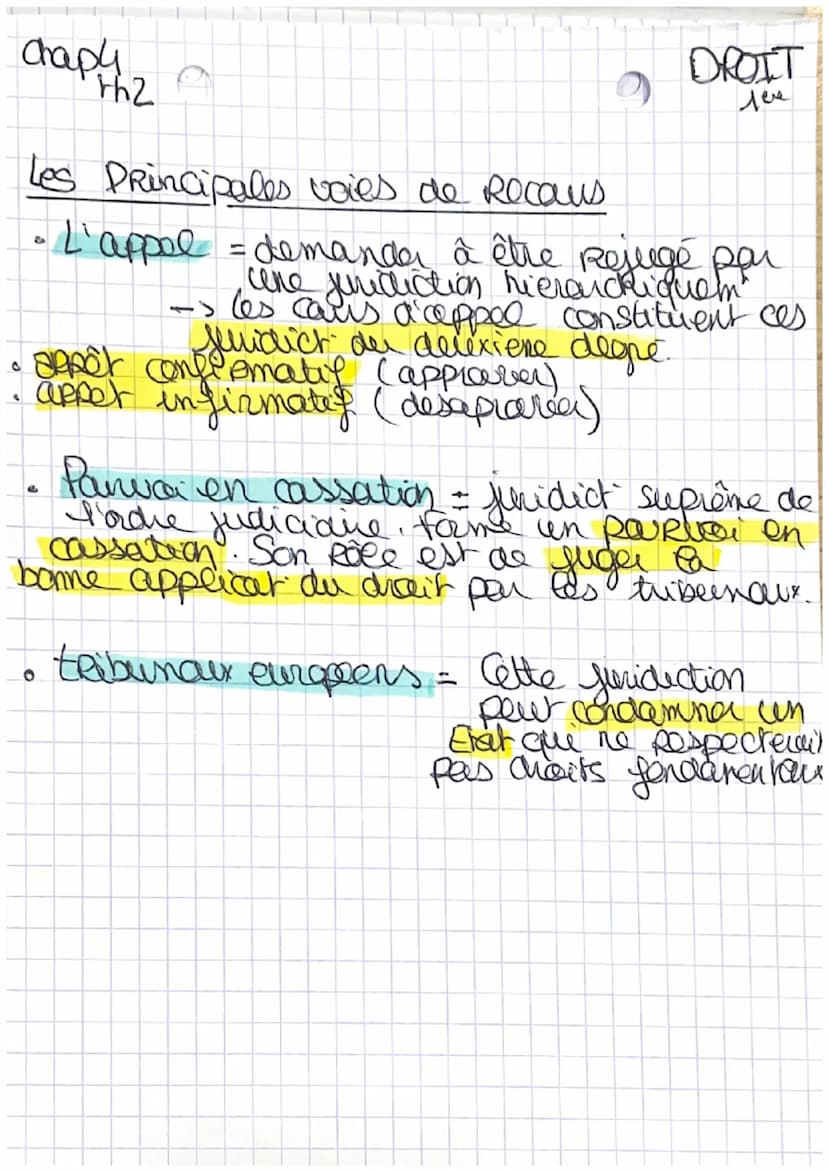 Chap4
th2
DROIT
1ère
Les Principales voies de Recours
• L'appel = demander à être rejugé par
une juridiction hierarchiquemt
-> les cours d'appel constituent ces
juridict° du deuxième degré.
• appêt confirmatif (approuver)
• appet infirmatif (desaprouver)
• Pourvoi en cassation = juridict° suprême de
l'ordre judiciaire. forme un pourvoi en
cassation. Son rôle est de juger la
bonne applicat° du droit par les tribunaux.
• tribunaux européens = Cette juridiction
peut condamner un
Etat qui ne respecterait
pas droits fondamentaux